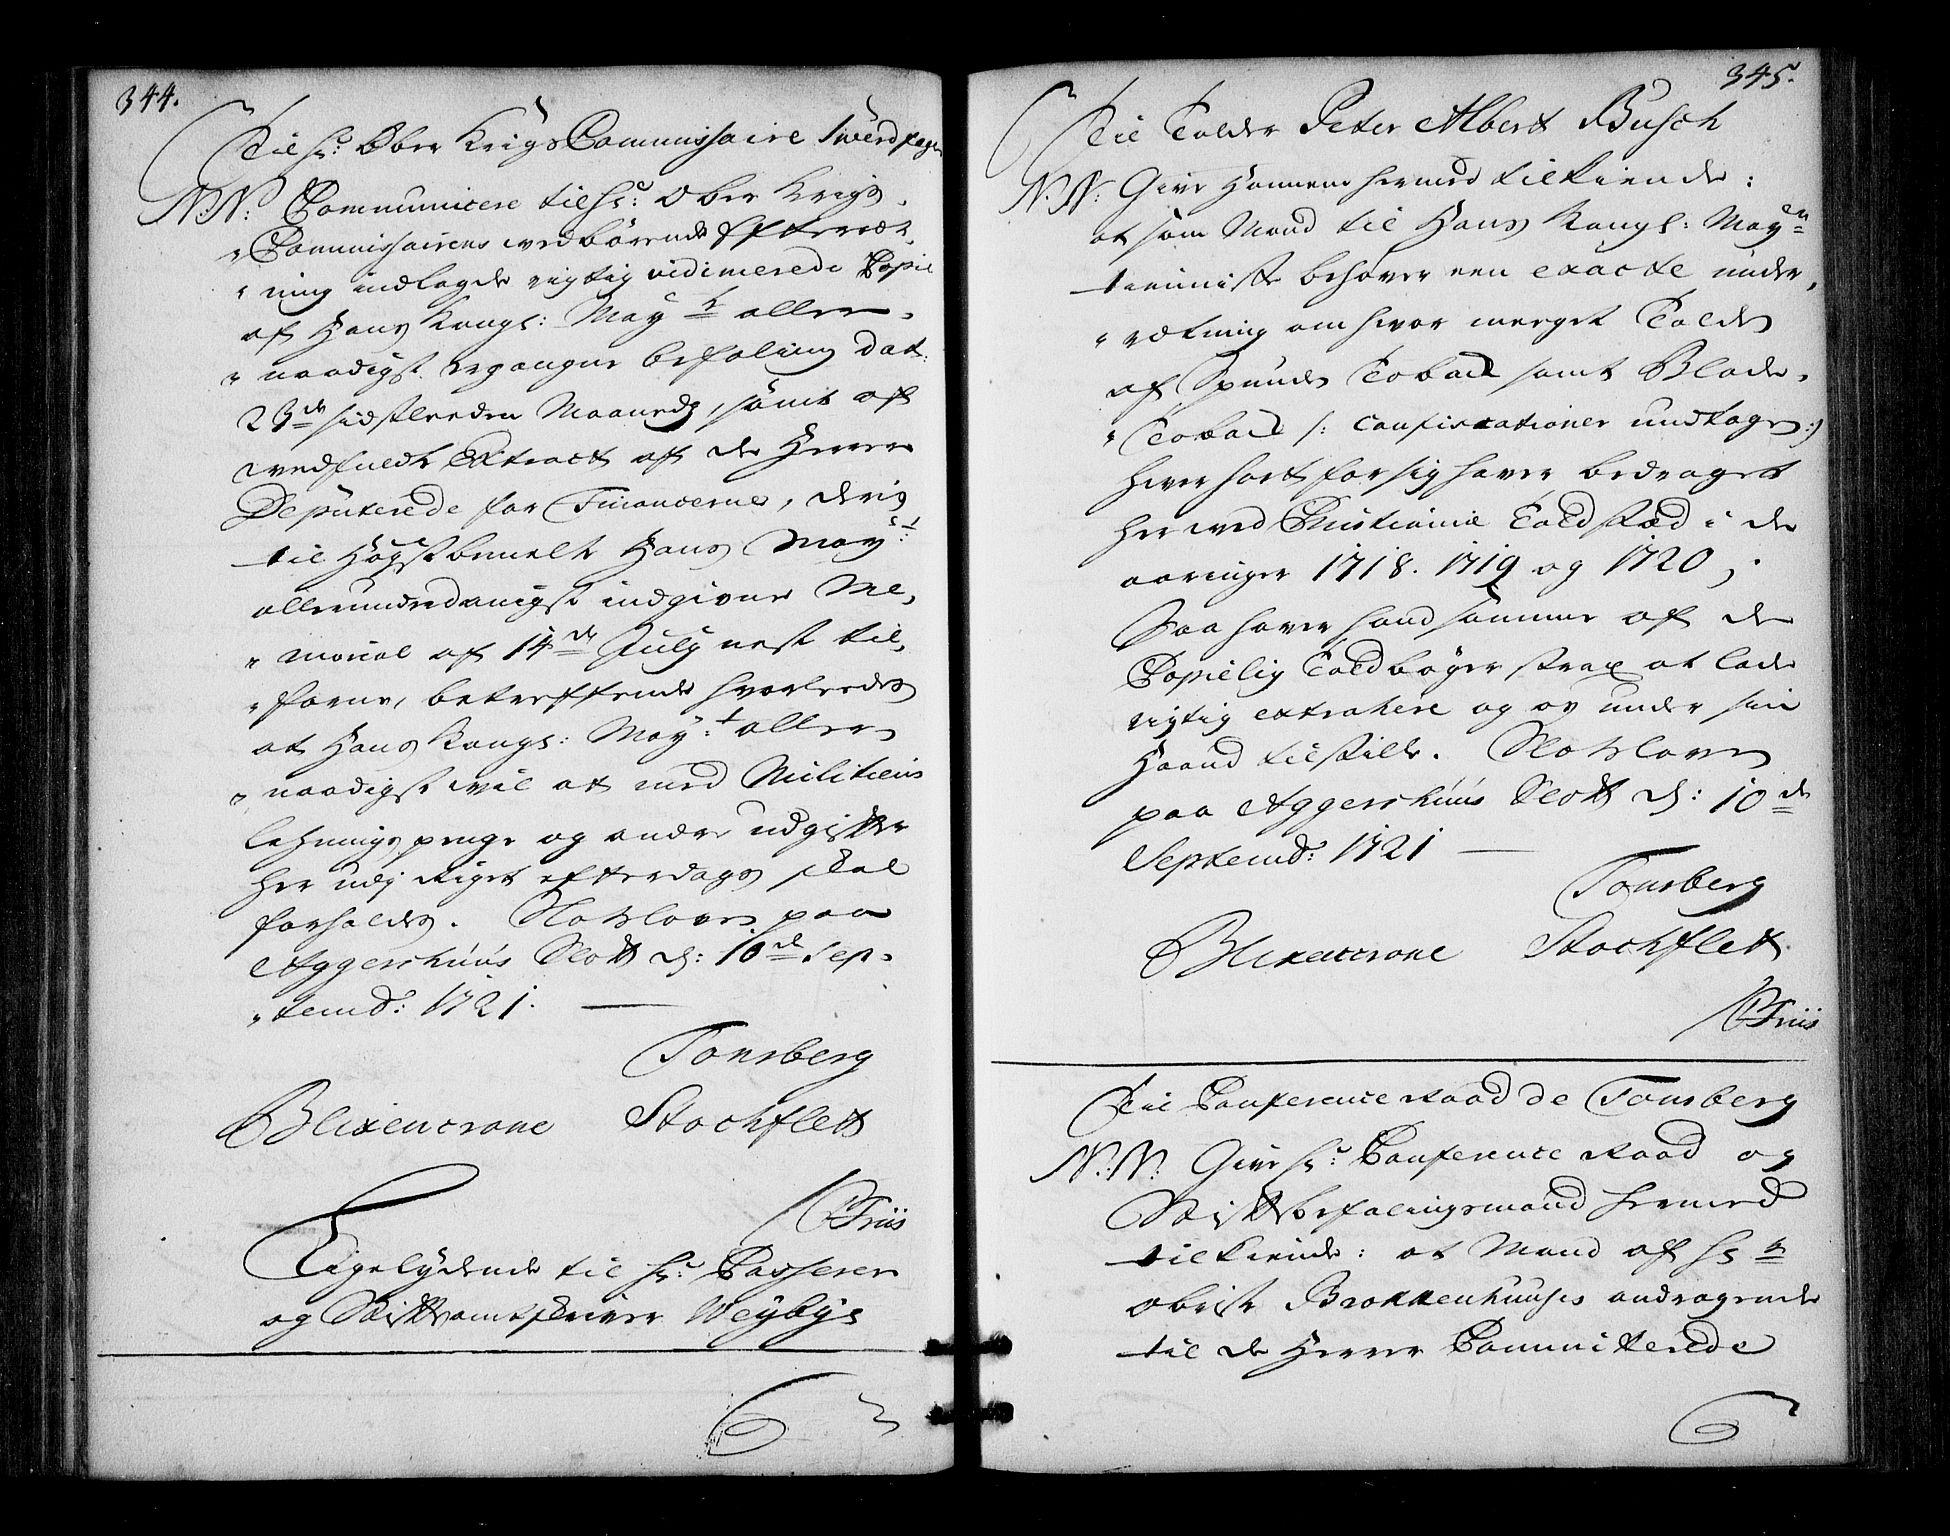 344.
Til Hr: Ober Krigs Commissaire Swerdfeger
N: N: Communicere til Hr: Ober Krigs
"Commissairens wedbörende Efterræt,
"ning indlagde rigtig vidimerede Copie
af Hans Kongl: May:ts aller,
"naadigst ergangne befaling dat:
23de sidstleeden Maaneds, samt af
wedfuldte Extract af de Herrer
Deputerede for Financerne, deris
til Höystbemelte Hans May:t
allerunderdanigst indgivne Me,
"morial af 14de July nest til,
"forne, betreffende hvorleedes
at Hans Kongl: May:t aller
"naadigst wil at med Militiens
lehnings penge og andre udgifter
her udj Riget efterdags skal
forholdes. Slotzloven paa
Aggershuus Slott d: 10de Sep,
"temb: 1721.
Tonsberg
Blixencrone Stockflett
Friis
Ligelydende til Hr: Casserer
og Stiftamtskriver Weybys
345.
Til Tolder Peter Albert Busch
N: N: Give Hannem hermed tilkiende:
at som Mand til Hans Kongl: May:ts
tienniste behøver een exacte under,
"rætning om hvor meeget Tolden
af Spunden Toback samt Blade,
"Toback /: Confiscationer undtagen :/
hver sort for sig haver bedraget
her wed Christiania Toldsted i de
aaringer 1718. 1719 og 1720,
Saa haver hand samme af de
Copielig Toldbøger strax at lade
rigtig extrahere og os under sin
Haand tilstille. Slotzloven
paa Aggershuus Slott d: 10de
Septemb: 1721
Tonsberg
Blixencrone Stockflett
Friis
Til Conference Raad de Tonsberg
N: N: Give Hr: Conference Raad og
Stiftbefalingsmand hermed
tilkiende: at Mand af Hr
Obriste Brokkenhuuses andragende
til de Herrer Committerede